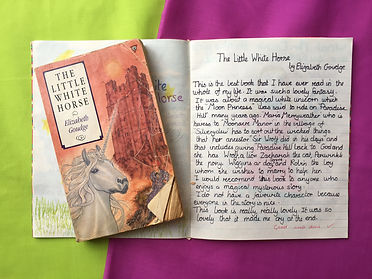 THE
LITTLE
WHITE
HORSE
Elizabeth
Goudge
The Little White Horse
by Elizabeth Goudge
This is the best book that I have ever read in the
whole of my life. It was such a lovely fantasy.
It was about a magical white unicorn which
the Moon Princess was said to ride on Paradise
Hill many years ago. Maria Merryweather who is
heiress to Moonacre Manor in the village of
Silverydew has to sort out the wicked things
that her ancestor Sir Wolf did in his days and
that includes giving Paradise Hill back to God and
she has Wrolf a lion Zachariah the cat, Periwinkle
the pony, Wiggins a dog and Robin the boy
whom she wishes to marry to help her.
I would recommend this book to anyone who
enjoys a magical mysterious story.
I do not have a favourite character because
everyone in the story is nice.
This book is really really lovely. It was so
lovely that it made me cry at the end.